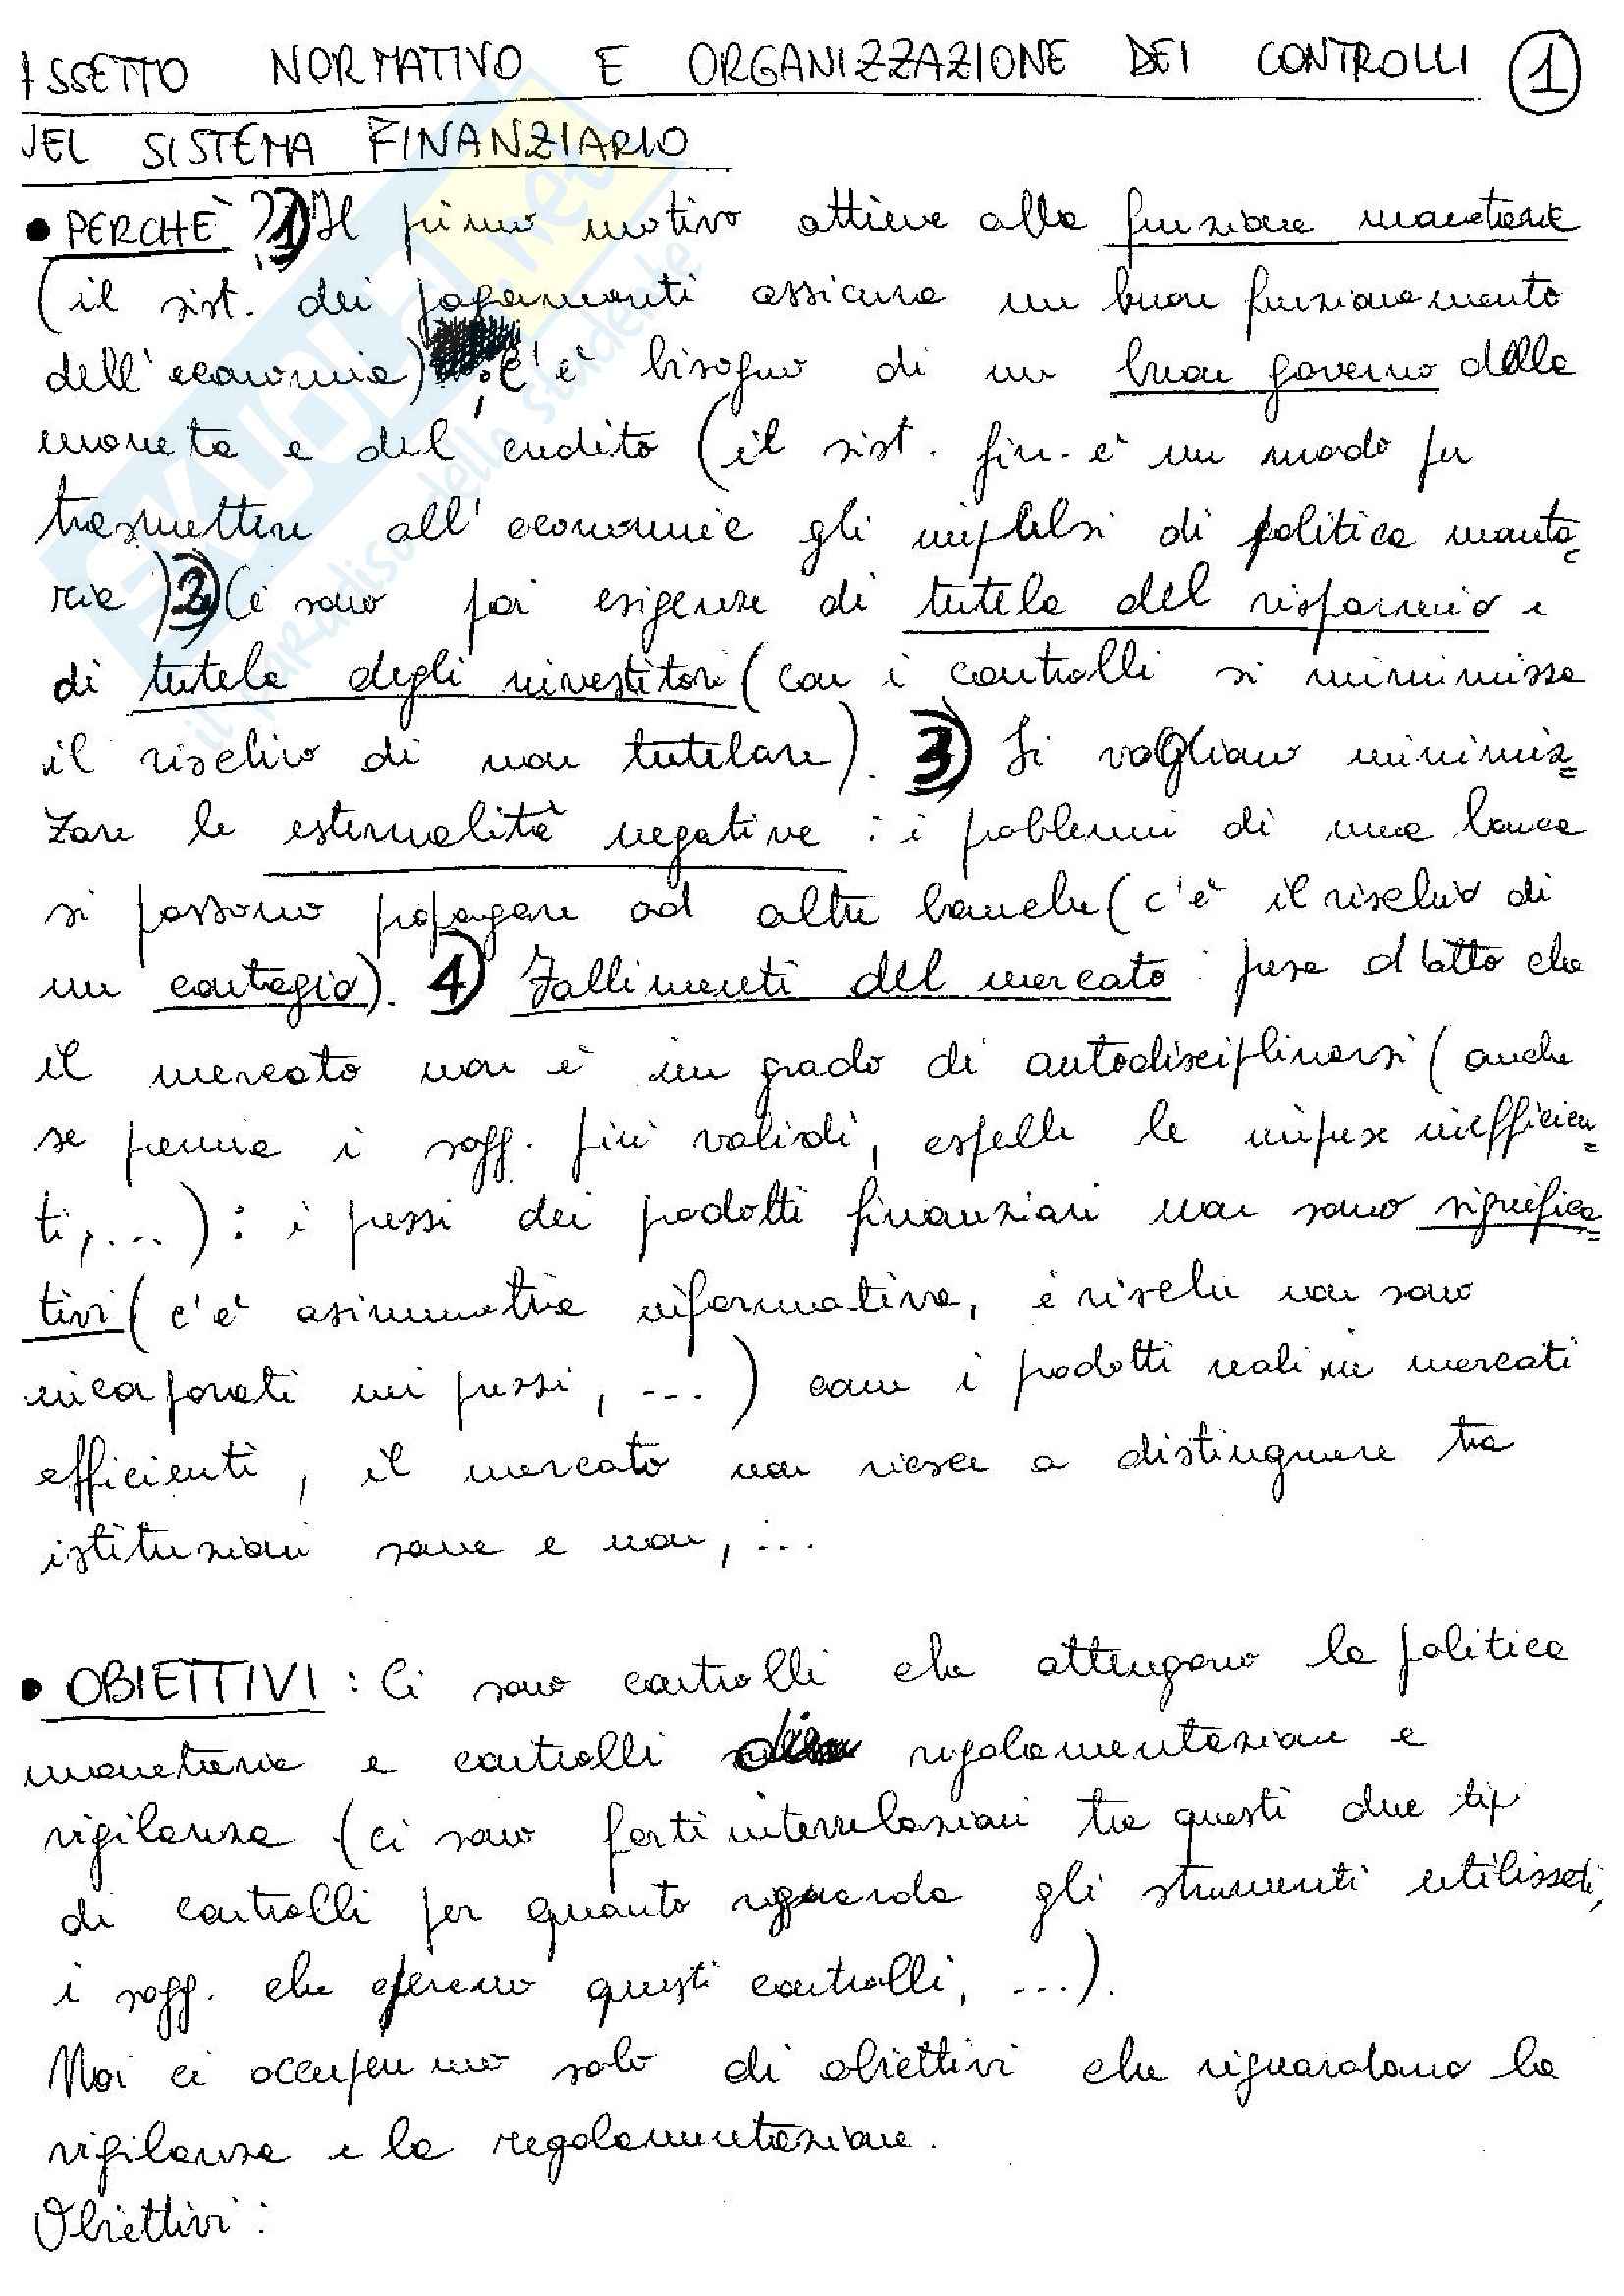 ASSETTO NORMATIVO E ORGANIZZAZIONE DEI CONTROLLI 1
DEL SISTEMA FINANZIARIO
• PERCHÈ ? 1) Il primo motivo attiene alla funzione monetaria
(il sist. dei pagamenti assicura un buon funzionamento
dell'economia); c'è bisogno di un buon governo della
moneta e del credito (il sist. fin. è un modo per
trasmettere all'economia gli impulsi di politica moneta=
ria) 2) Ci sono poi esigenze di tutela del risparmio e
di tutela degli investitori (con i controlli si minimizza
il rischio di non tutelare). 3) Si vogliono minimiz=
zare le esternalità negative : i problemi di una banca
si possono propagare ad altre banche (c'è il rischio di
un contagio). 4) Fallimenti del mercato : presa d'atto che
il mercato non è in grado di autodisciplinarsi (anche
se premia i sogg. più validi, espelle le imprese inefficien=
ti, ...) : i prezzi dei prodotti finanziari non sono significa=
tivi (c'è asimmetria informativa, i rischi non sono
incorporati nei prezzi, ...) come i prodotti reali in mercati
efficienti, il mercato non riesce a distinguere tra
istituzioni sane e non, ...
• OBIETTIVI : Ci sono controlli che attengono la politica
monetaria e controlli di regolamentazione e
vigilanza (ci sono forti interrelazioni tra questi due tipi
di controlli per quanto riguarda gli strumenti utilizzati,
i sogg. che operano questi controlli, ...).
Noi ci occuperemo solo di obiettivi che riguardano la
vigilanza e la regolamentazione.
Obiettivi :
il paradiso dello studente